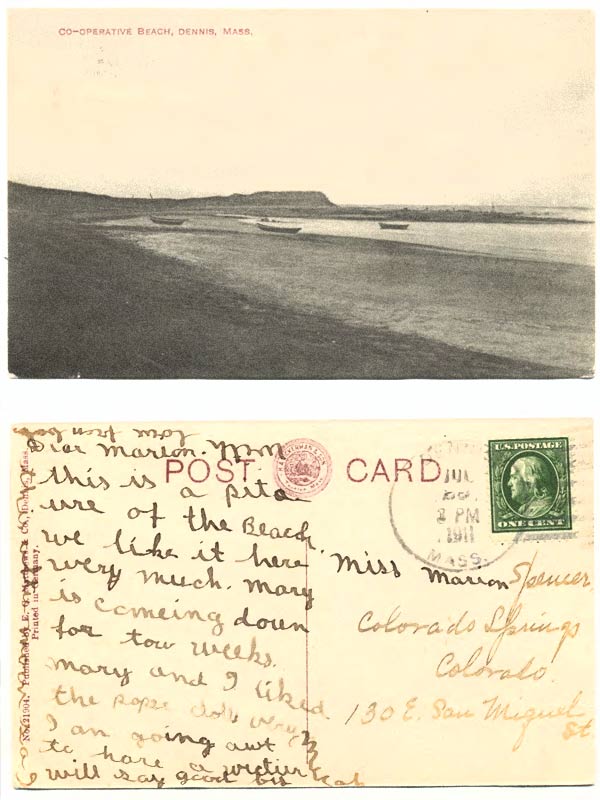 CO-OPERATIVE BEACH, DENNIS, MASS.
POST CARD
U.S. POSTAGE
ONE CENT
JUL
2 PM
1911
MASS.
Dear Marion.
this is a pita
ure of the Beach
we like it here
very much. Mary
is comeing down
for tow weeks.
Mary and I liked
the pape doll very
I am going awt
to hare a
I will say good bis
Miss Marion Spencer
Colorado Springs
Colorado.
130 E. San Miguel
St.
No. 21904. Published by E. Co., Mass.
Printed in Germany.